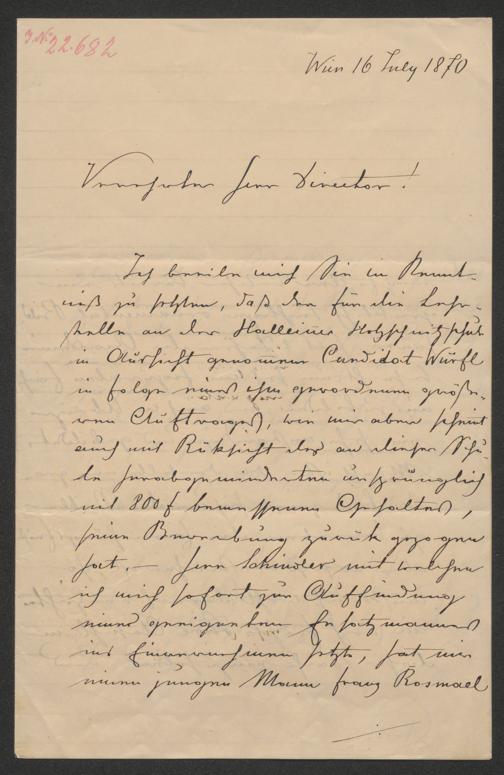 J. No 22.682
Wien 16 July 1870
Verehrter Herr Director!
Ich beeile mich Sie in Kennt-
niß zu setzen, daß der für die Lehr-
stelle an der Halleiner Holzschnitzschule
in Aussicht genomene Candidat Würfl
in folge eines ihm gewordenen größe-
ren Auftrages, wie mir aber scheint
auch mit Rüksicht des an dieser Schu-
le herabgeminderten ursprünglich
mit 800 f bemessenen Gehaltes,
seine Bewerbung zurük gezogen
hat. — Herr Schindler mit welchem
ich mich sofort zur Auffindung
eines geeigneten Ersatzmannes
ins Einvernehmen setzte, hat mir
einen jungen Mann franz Rosmael